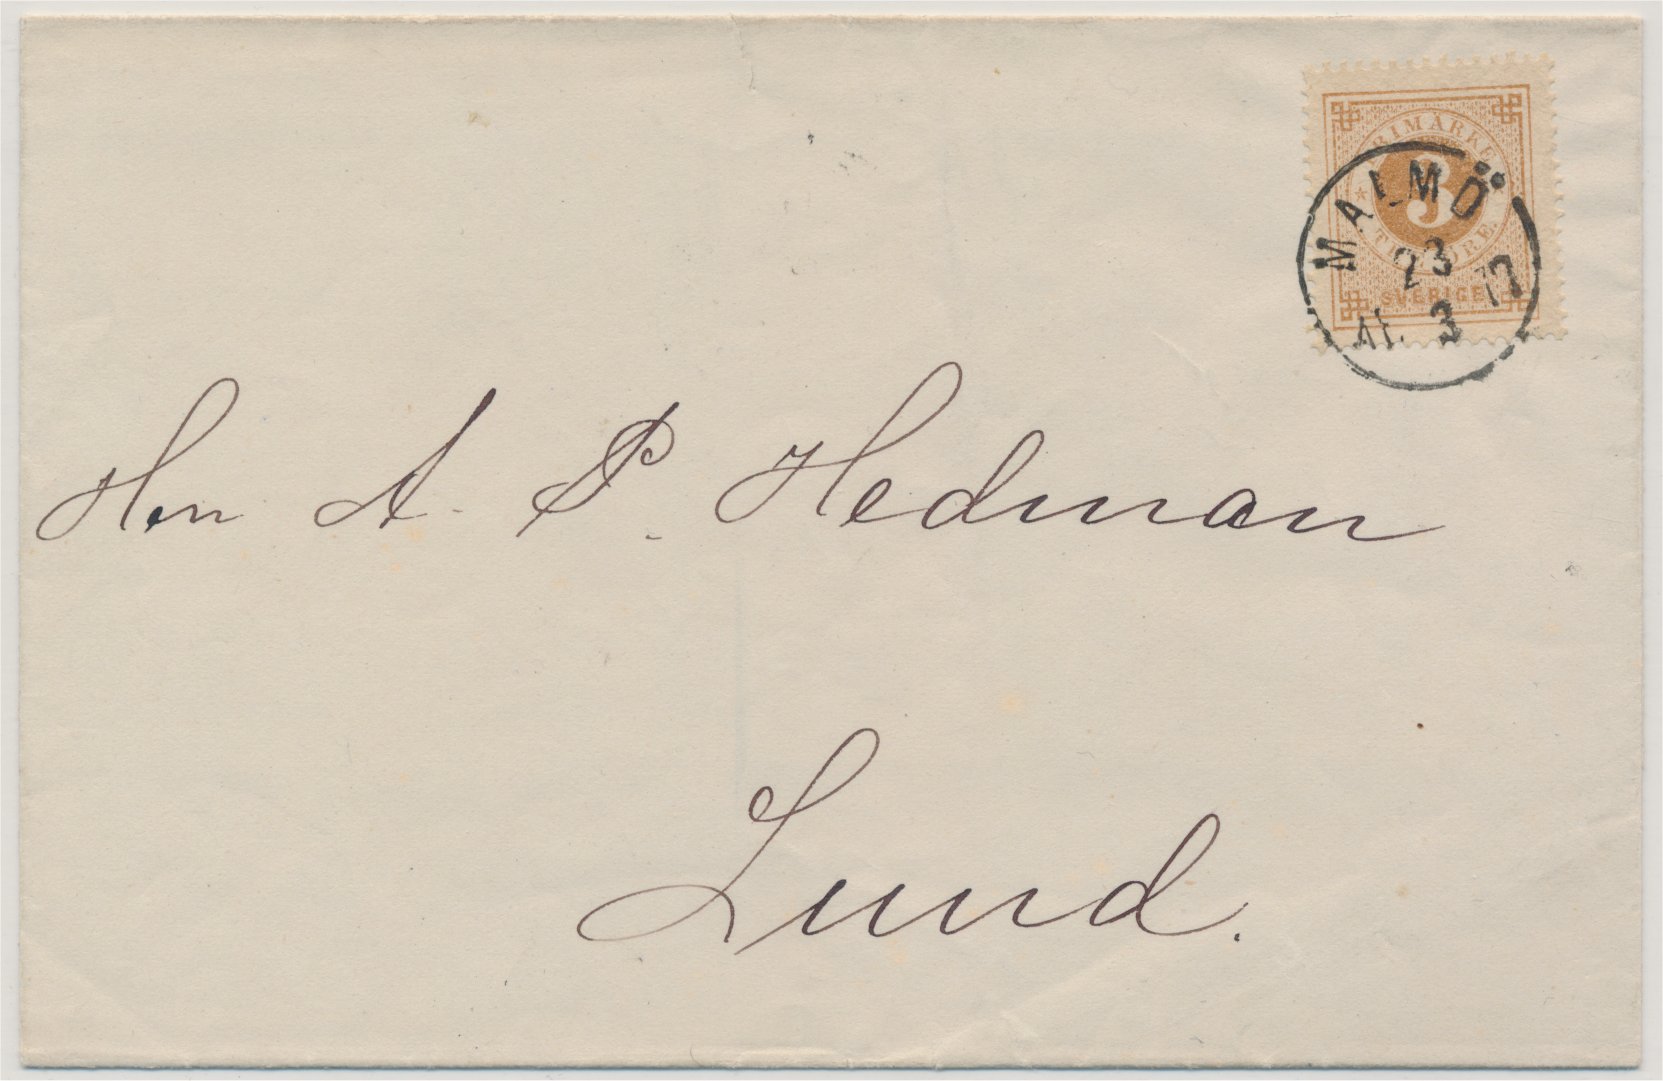 FRIMÄRKE
3
TRE ÖRE.
SVERIGE
MALMÖ
23
3 77
Herr A. P. Hedman
Lund.